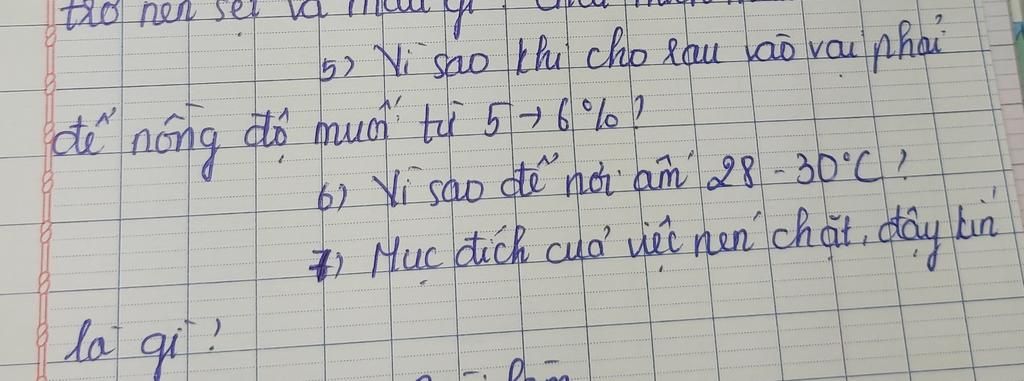 trở nên
5) Vì sao khi cho rau vào vại phải
để nồng độ muối từ 5 → 6%?
6) Vì sao để nơi ấm 28 - 30°C?
7) Mục đích của việc nén chặt, đậy kín
là gì?